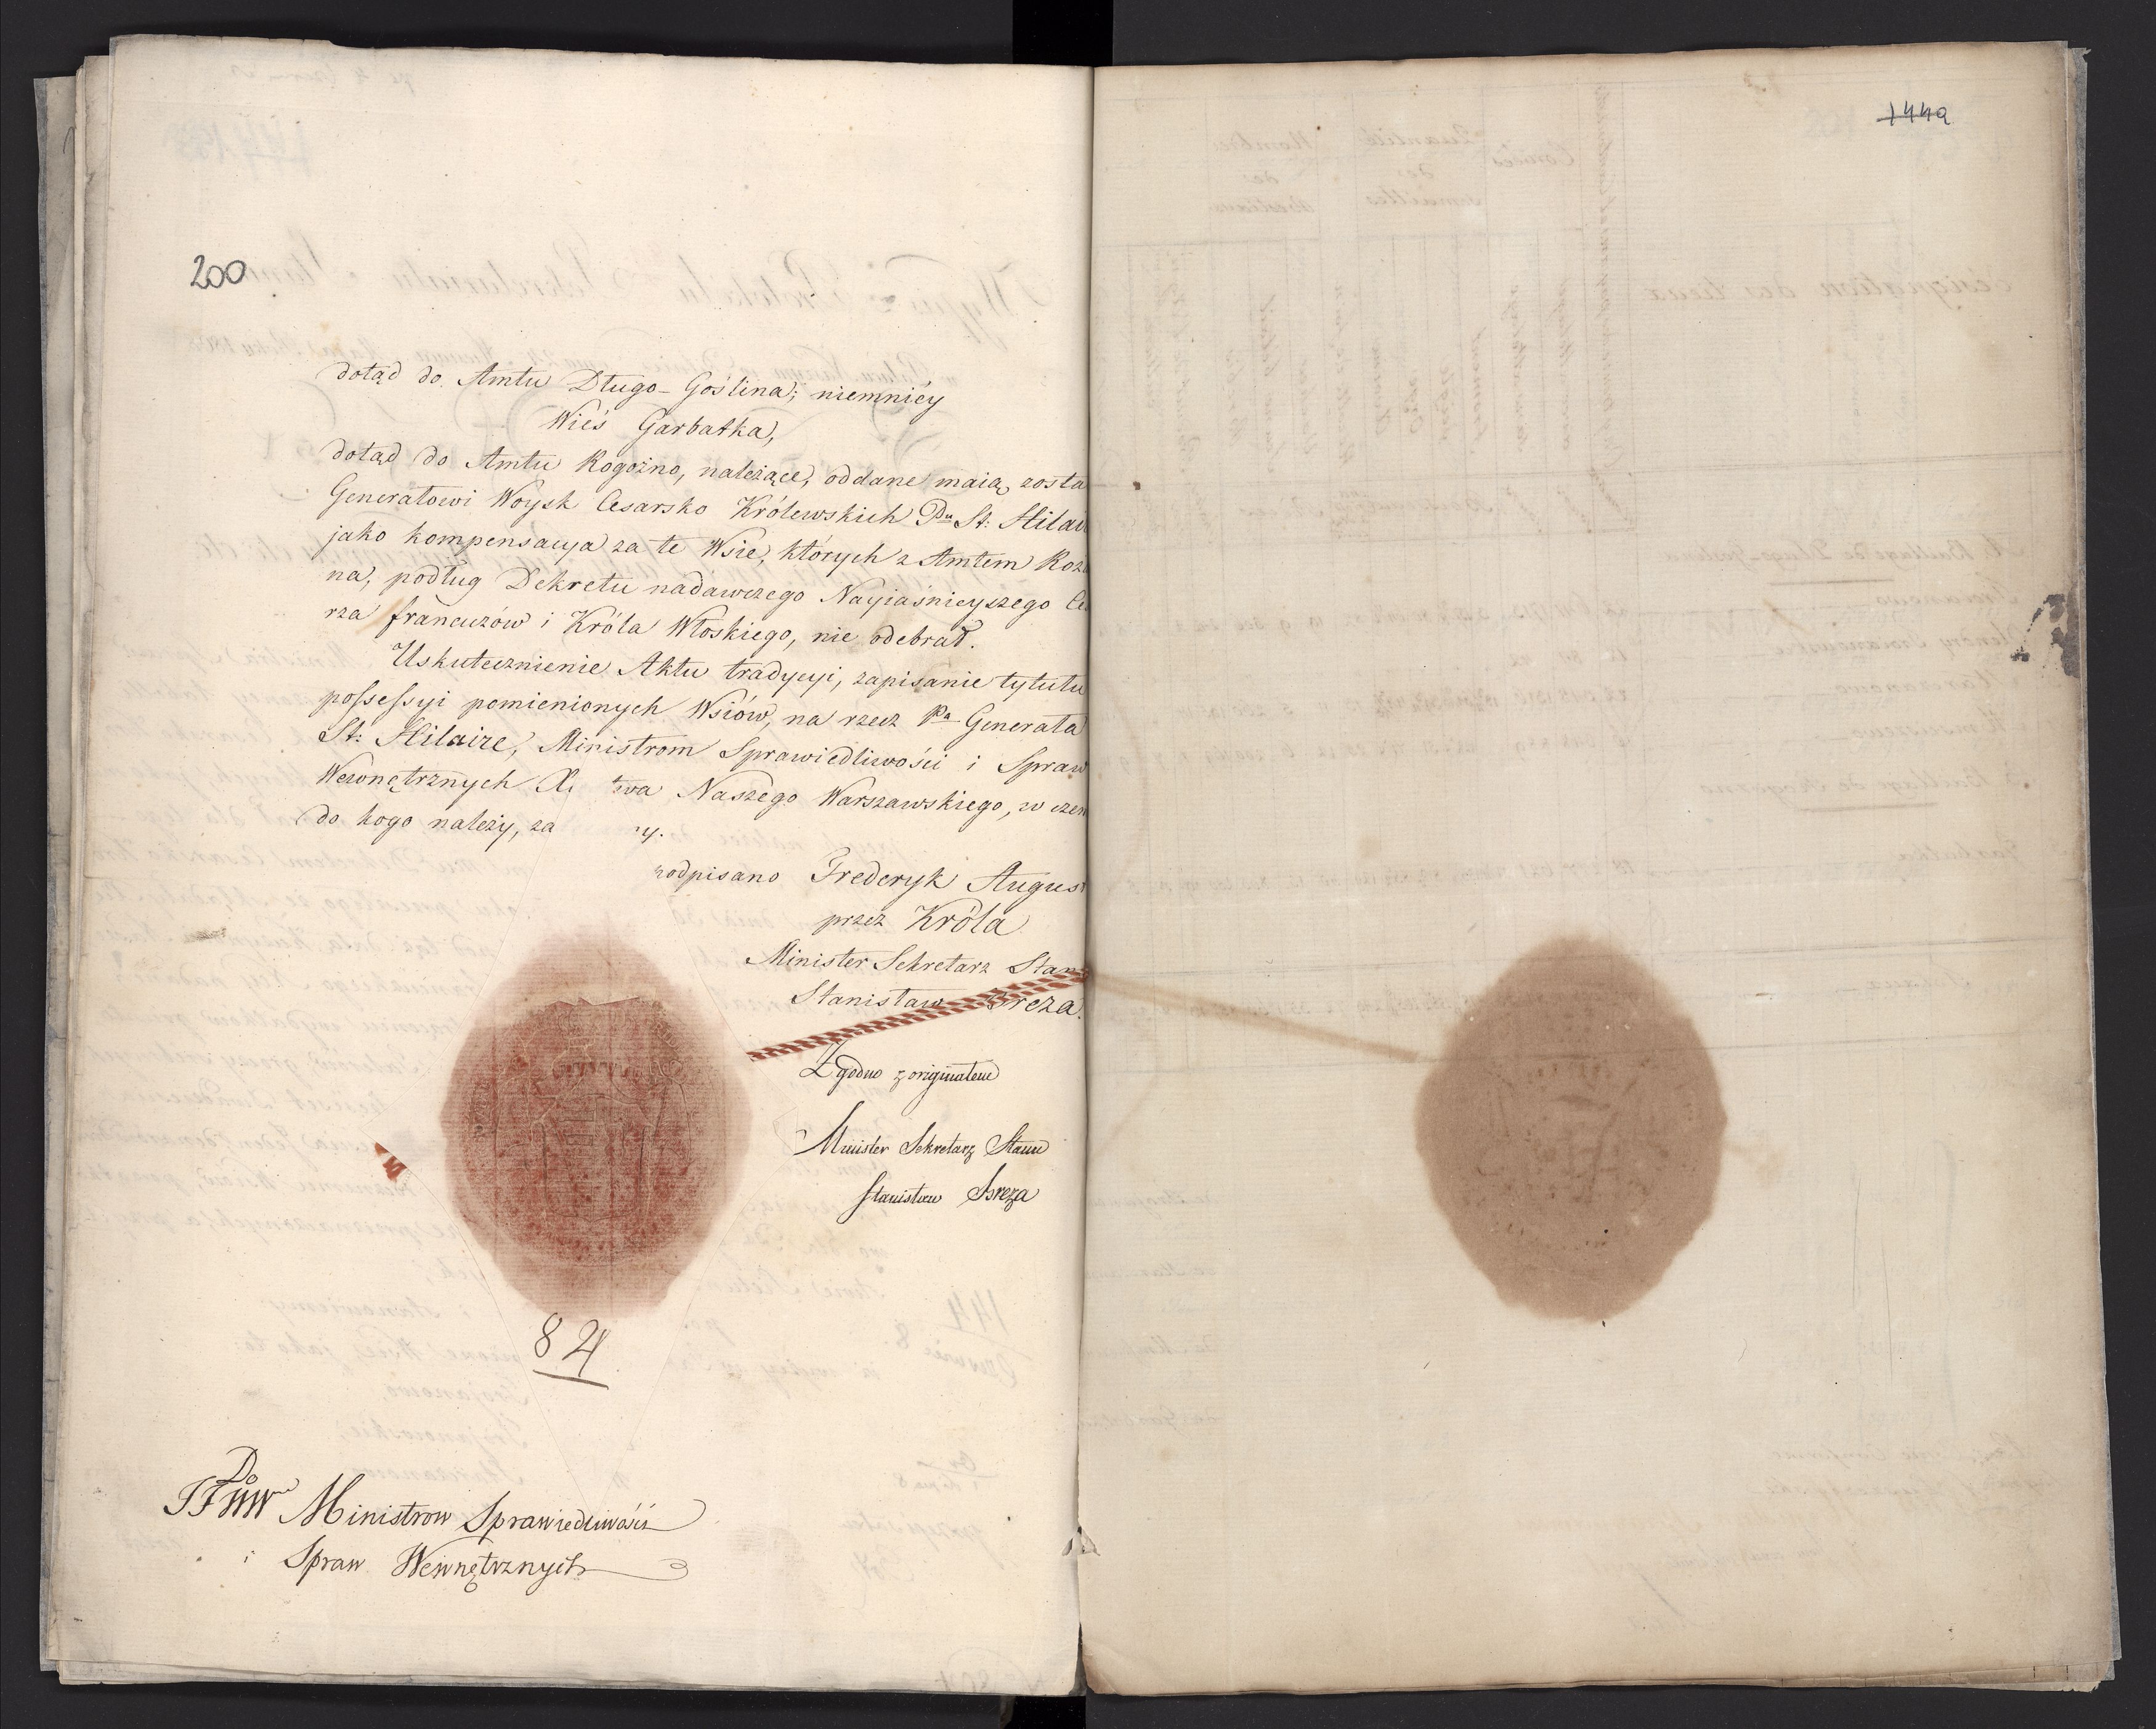 200
dotąd do Amtu Długo-Goślina; niemniéy
Wieś Garbatka,
dotąd do Amtu Rogoźno, należące, oddane maią zosta
Generałowi Woysk Cesarsko Królewskich Pu St: Hilai
jako kompensacya za te Wsie, których z Amtem Roz
na, podług Dekretu nadawczego Nayiaśnieyszego Ce
rza francuzów i Króla Włoskiego, nie odebrał.
Uskutecznienie Aktu tradycyi, zapisanie tytułu
possessyi pomienionych Wsiów, na rzecz Pa Generała
St: Hilaire, Ministrom Sprawiedliwości i Spraw
Wewnętrznych X twa Naszego Warszawskiego, w czem
do kogo należy, za y.
podpisano Frederyk August
przez Króla
Minister Sekretarz Stanu
Stanisław Breza.
Zgodno z originałem
Minister Sekretarz Stanu
Stanisław Breza
84
Do
JJWW Ministrow Sprawiedliwości
i Spraw Wewnętrznych
144a